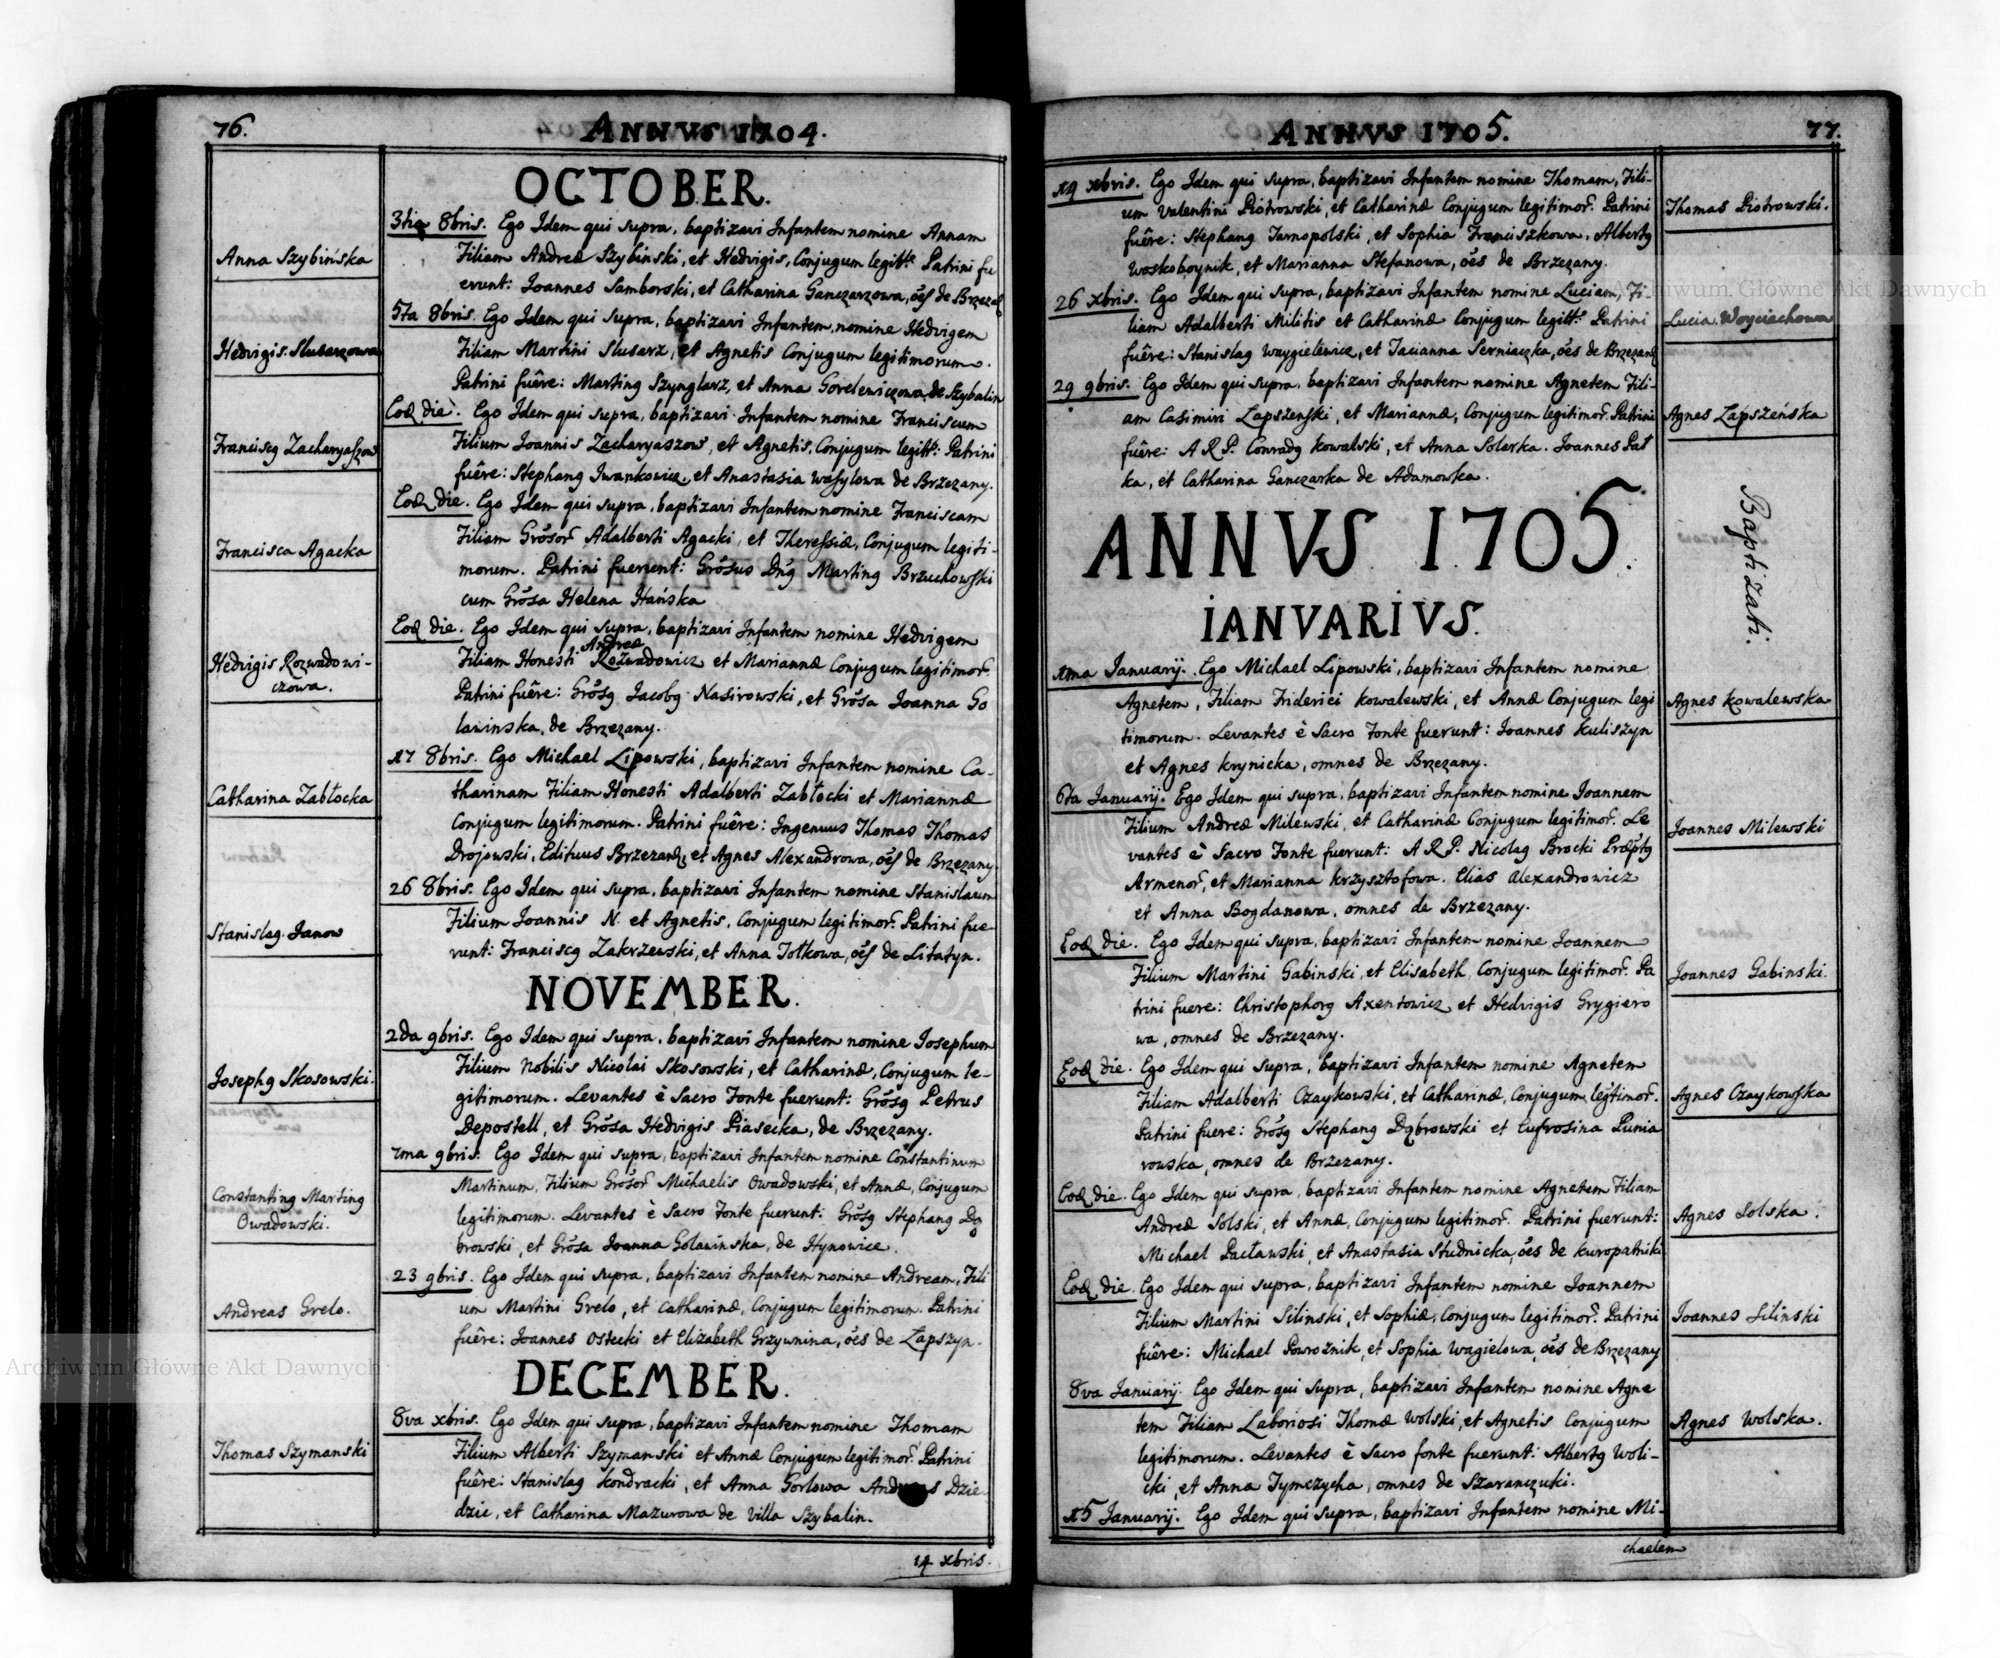 76.
ANNVS 1704.
OCTOBER.
3tia 8bris. Ego Idem qui supra, baptizavi Infantem nomine Annam
Anna Szybińska
Filiam Andreæ Szybinski, et Hedvigis, Conjugum legitt: Patrini fu
erunt: Joannes Samborski, et Catharina Ganczarzowa, oēs de Brzezaṇ
5ta 8bris. Ego Idem qui supra, baptizavi Infantem nomine Hedvigem
Hedvigis Slusarzowa
Filiam Martini Slusarz, et Agnetis Conjugum legitimorum.
Patrini fuêre: Marting Szynglarz, et Anna Gorelewiczowa de Szybalin
Eod die. Ego Idem qui supra, baptizavi Infantem nomine Franciscum
Franciscg Zacharyaszow
Filium Joannis Zacharyaszow, et Agnetis, Conjugum legitt: Patrini
fuêre: Stephang Iwankowicz, et Anastasia Wasylowa de Brzezany.
Eod die. Ego Idem qui supra, baptizavi Infantem nomine Franciscam
Francisca Agacka
Filiam Grōsor Adalberti Agacki, et Theressiæ, Conjugum legiti-
morum. Patrini fuerunt: Grōsus Dn̄g Marting Brzuchowski
cum Grōsa Helena Hańska
Eod die. Ego Idem qui supra, baptizavi Infantem nomine Hedvigem
Hedvigis Rozwadowi-
czowa.
Andreæ
Filiam Honesti Rozwadowicz et Mariannæ Conjugum legitimor
Patrini fuêre: Grōsg Jacobg Nasirowski, et Grōsa Joanna Go
lawinska, de Brzezany.
17 8bris. Ego Michael Lipowski, baptizavi Infantem nomine Ca-
Catharina Zabłocka
tharinam Filiam Honesti Adalberti Zabłocki et Mariannæ
Conjugum legitimorum. Patrini fuêre: Ingenuus Thomas Thomas
Drojowski, Edituus Brzezaṇ, et Agnes Alexandrowa, oēs de Brzezany
26 8bris. Ego Idem qui supra, baptizavi Infantem nomine Stanislaum
Stanislag Janow
Filium Joannis N. et Agnetis, Conjugum legitimor. Patrini fue
runt: Franciscg Zakrzewski, et Anna Tołkowa, oēs de Litatyn.
NOVEMBER.
2da 9bris. Ego Idem qui supra, baptizavi Infantem nomine Josephum
Josephg Skosowski.
Filium Nobilis Nicolai Skosowski, et Catharinæ, Conjugum le-
gitimorum. Levantes è Sacro Fonte fuerunt: Grōsg Petrus
Depostell, et Grōsa Hedvigis Piasecka, de Brzezany.
7ma 9bris. Ego Idem qui supra, baptizavi Infantem nomine Constantinum
Constanting Marting
Owadowski.
Martinum, Filium Grōsor Michaelis Owadowski, et Annæ, Conjugum
legitimorum. Levantes è Sacro Fonte fuerunt: Grōsg Stephang Dą
browski, et Grōsa Joanna Golawinska, de Hynowice.
23 9bris. Ego Idem qui supra, baptizavi Infantem nomine Andream, Fili
Andreas Grelo.
um Martini Grelo, et Catharinæ, Conjugum legitimorum. Patrini
fuêre: Joannes Ostecki et Elizabeth Grzywnina, oēs de Lapszyn.
DECEMBER.
8va xbris. Ego Idem qui supra, baptizavi Infantem nomine Thomam
Thomas Szymanski
Filium Alberti Szymanski et Annæ Conjugum legitimor. Patrini
fuêre: Stanislag Kondracki, et Anna Gorlowa Andreas Dzie
dzic, et Catharina Mazurowa de Villa Szybalin.
14 xbris.
ANNVS 1705.
77.
19 xbris. Ego Idem qui supra, baptizavi Infantem nomine Thomam, Fili-
um Valentini Piotrowski, et Catharinæ Conjugum legitimor. Patrini
Thomas Piotrowski.
fuêre: Stephang Tarnopolski, et Sophia Franciszkowa, Albertg
Woskoboynik, et Marianna Stefanowa, oēs de Brzezany.
26 xbris. Ego Idem qui supra, baptizavi Infantem nomine Luciam, Fi-
liam Adalberti Militis et Catharinæ Conjugum legitt: Patrini
Lucia Woyciachowa
fuêre: Stanislag Waygielewicz, et Tacianna Serniaczka, oēs de Brzezaṇ
29 9bris. Ego Idem qui supra, baptizavi Infantem nomine Agnetem Fili-
am Casimiri Lapszenski, et Mariannæ, Conjugum legitimor. Patrini
Agnes Lapszeńska
fuêre: A R P. Conradg Kowalski, et Anna Solarka. Joannes Pat
ka, et Catharina Ganczarka de Adamowka.
ANNVS 1705.
Baptizati.
IANVARIVS.
1ma Januarij. Ego Michael Lipowski, baptizavi Infantem nomine
Agnetem, Filiam Friderici Kowalewski, et Annæ Conjugum legi
Agnes Kowalewska
timorum. Levantes è Sacro Fonte fuerunt: Joannes Kuliszyn
et Agnes Krynicka, omnes de Brzezany.
6ta Januarij. Ego Idem qui supra, baptizavi Infantem nomine Joannem
Filium Andreæ Milewski, et Catharinæ Conjugum legitimor. Le
Joannes Milewski
vantes è Sacro Fonte fuerunt: A R P. Nicolag Brocki Præptg
Armenor, et Marianna Krzysztofowa. Elias Alexandrowicz
et Anna Bogdanowa, omnes de Brzezany.
Eod die. Ego Idem qui supra, baptizavi Infantem nomine Joannem
Filium Martini Gabinski, et Elisabeth, Conjugum legitimor. Pa
Joannes Gabinski.
trini fuere: Christophorg Axentowicz et Hedvigis Grygiero
wa, omnes de Brzezany.
Eod die. Ego Idem qui supra, baptizavi Infantem nomine Agnetem
Filiam Adalberti Czaykowski, et Catharinæ, Conjugum legitimor.
Agnes Czaykowska
Patrini fuere: Grōsg Stephang Dąbrowski et Eufrosina Punia
rouska, omnes de Brzezany.
Eod die. Ego Idem qui supra, baptizavi Infantem nomine Agnetem Filiam
Andreæ Solski, et Annæ, Conjugum legitimor. Patrini fuerunt:
Agnes Solska.
Michael Pacławski, et Anastasia Studnicka, oēs de Kuropatniki
Eod die. Ego Idem qui supra, baptizavi Infantem nomine Joannem
Filium Martini Silinski, et Sophiæ, Conjugum legitimor. Patrini
Joannes Silinski
fuêre: Michael Powroznik, et Sophia Wagielowa, oēs de Brzezany
8va Januarij. Ego Idem qui supra, baptizavi Infantem nomine Agne
tem Filiam Laboriosi Thomæ Wolski, et Agnetis Conjugum
Agnes Wolska.
legitimorum. Levantes è Sacro fonte fuerunt: Albertg Woli-
cki, et Anna Tymczycha, omnes de Szaranczuki.
15 Januarij. Ego Idem qui supra, baptizavi Infantem nomine Mi-
chaelem
Archiwum Główne Akt Dawnych
Archiwum Główne Akt Dawnych